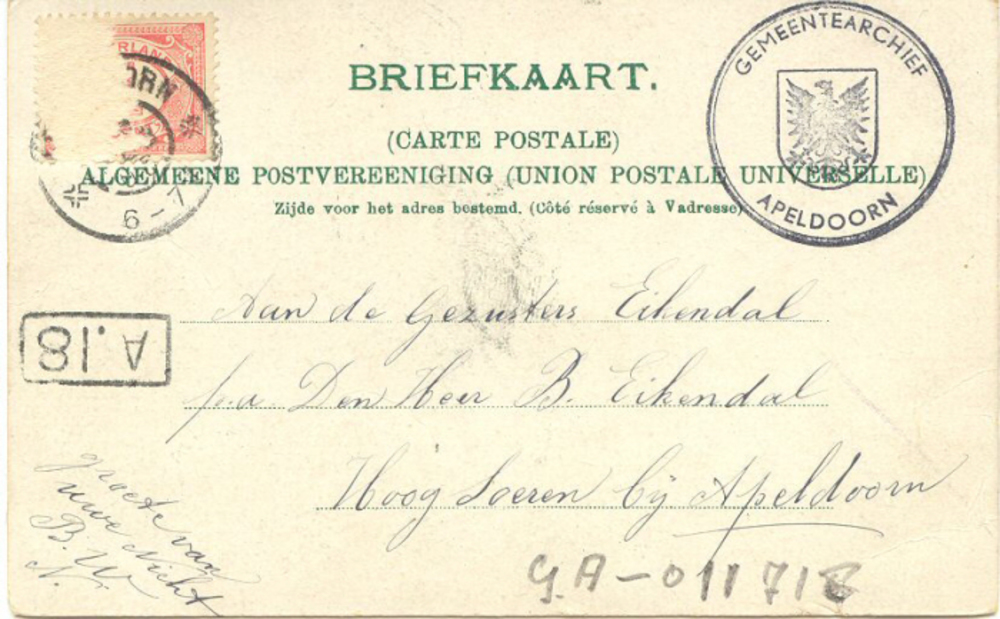 BRIEFKAART.
(CARTE POSTALE)
ALGEMEENE POSTVEREENIGING (UNION POSTALE UNIVERSELLE)
Zijde voor het adres bestemd. (Côté réservé à Vadresse)
GEMEENTEARCHIEF
APELDOORN
ERLAN
ORN
6-7
A.18
Aan de Gezusters Eikendal
p.a. Den Heer B. Eikendal
Hoog Soeren bij Apeldoorn
groete van
uwe Nicht
B. W
N.
G.A-011718